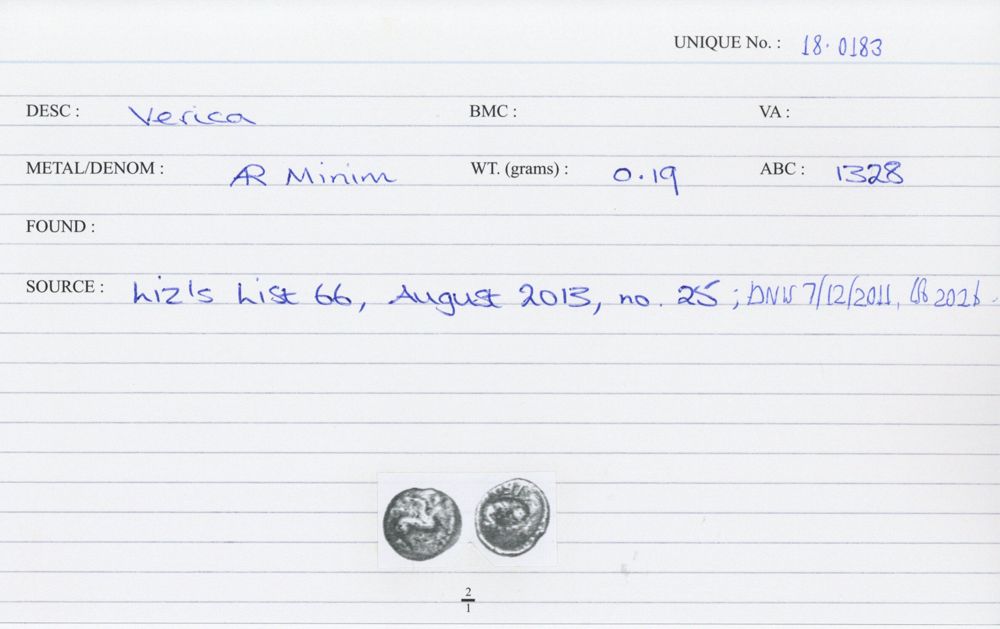 UNIQUE No. : 18.0183
DESC : Verica BMC : VA :
METAL/DENOM : AR Minim WT. (grams) : 0.19 ABC : 1328
FOUND :
SOURCE : Liz's List 66, August 2013, no. 25; DNW 7/12/2011, 2026.
2
1